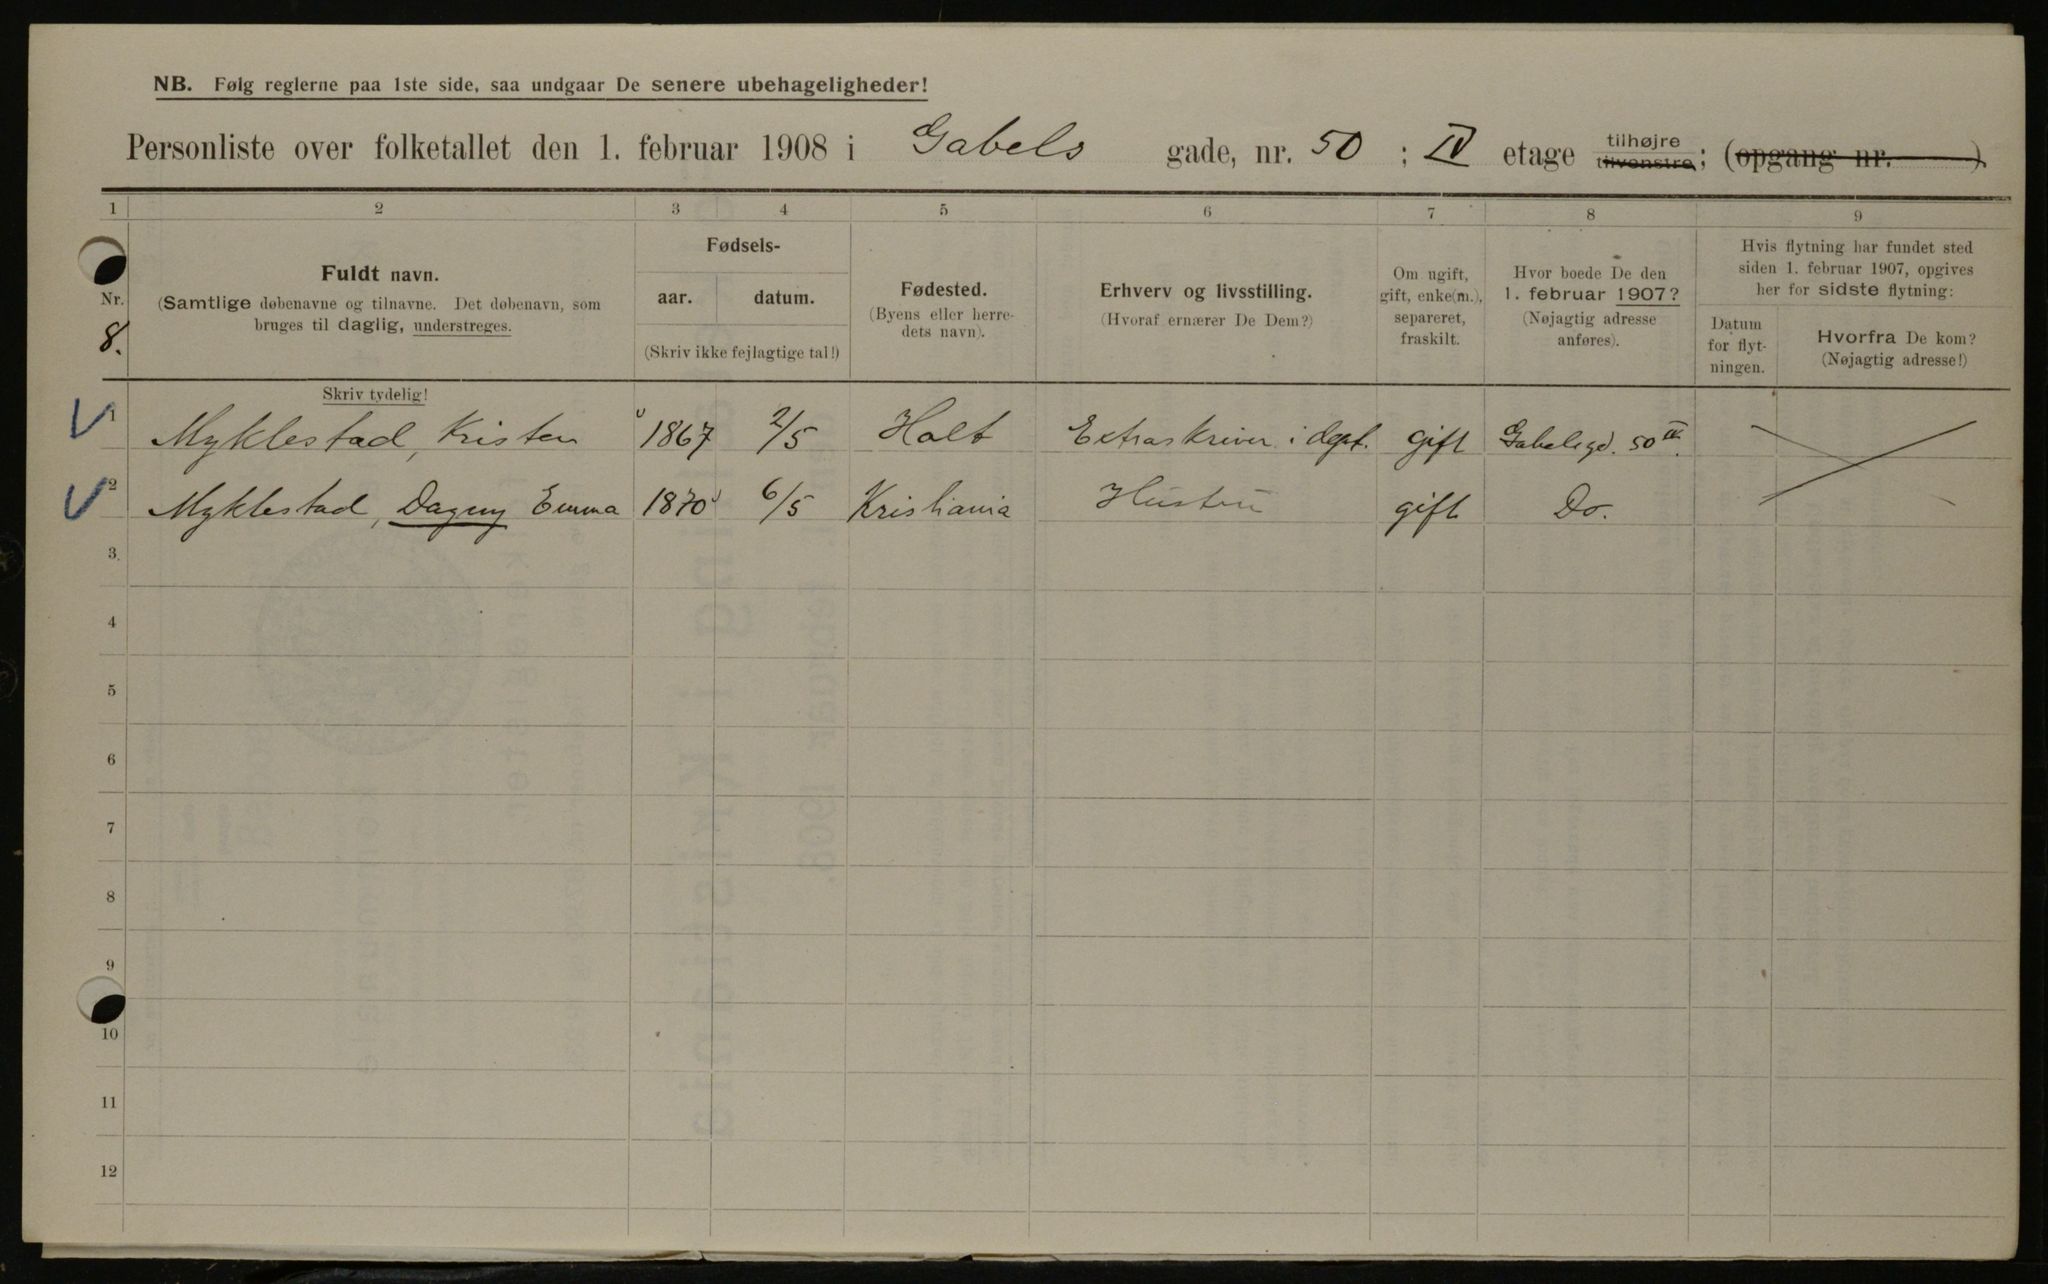 NB. Følg reglerne paa 1ste side, saa undgaar De senere ubehageligheder!
Personliste over folketallet den 1. februar 1908 i Gabels gade, nr. 50 ; IV etage tilhøjre tilvenstre ; (opgang nr. )
1 2 3 4 5 6 7 8 9
Nr. 8.
Fuldt navn.
(Samtlige døbenavne og tilnavne. Det døbenavn, som
bruges til daglig, understreges.
Fødsels-
aar. datum.
(Skriv ikke fejlagtige tal!)
Fødested.
(Byens eller herre-
dets navn).
Erhverv og livsstilling.
(Hvoraf ernærer De Dem?)
Om ugift,
gift, enke(m.),
separeret,
fraskilt.
Hvor boede De den
1. februar 1907?
(Nøjagtig adresse
anføres).
Hvis flytning har fundet sted
siden 1. februar 1907, opgives
her for sidste flytning:
Datum
for flyt-
ningen.
Hvorfra De kom?
(Nøjagtig adresse!)
Skriv tydelig!
1 Myklestad, Kristen 1867 2/5 Holt Extraskriver i dept. gift Gabelsgd. 50 IV.
2 Myklestad, Dagny Emma 1870 6/5 Kristiania Hustru gift Do.
3
4
5
6
7
8
9
10
11
12